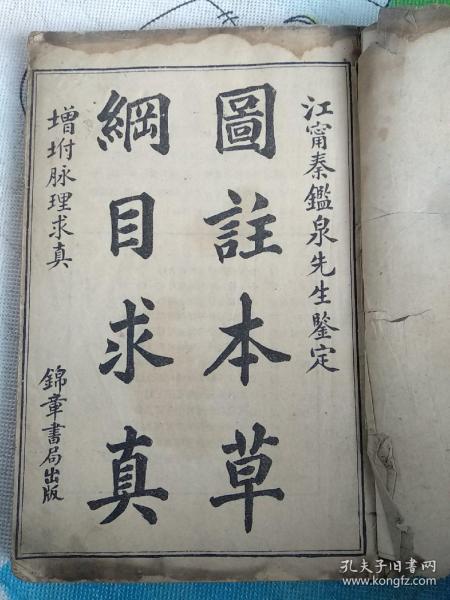 江甯秦鑑泉先生鑒定
圖註本草
綱目求真
增坿脉理求真
錦章書局出版
孔夫子旧书网
www.kongfz.com